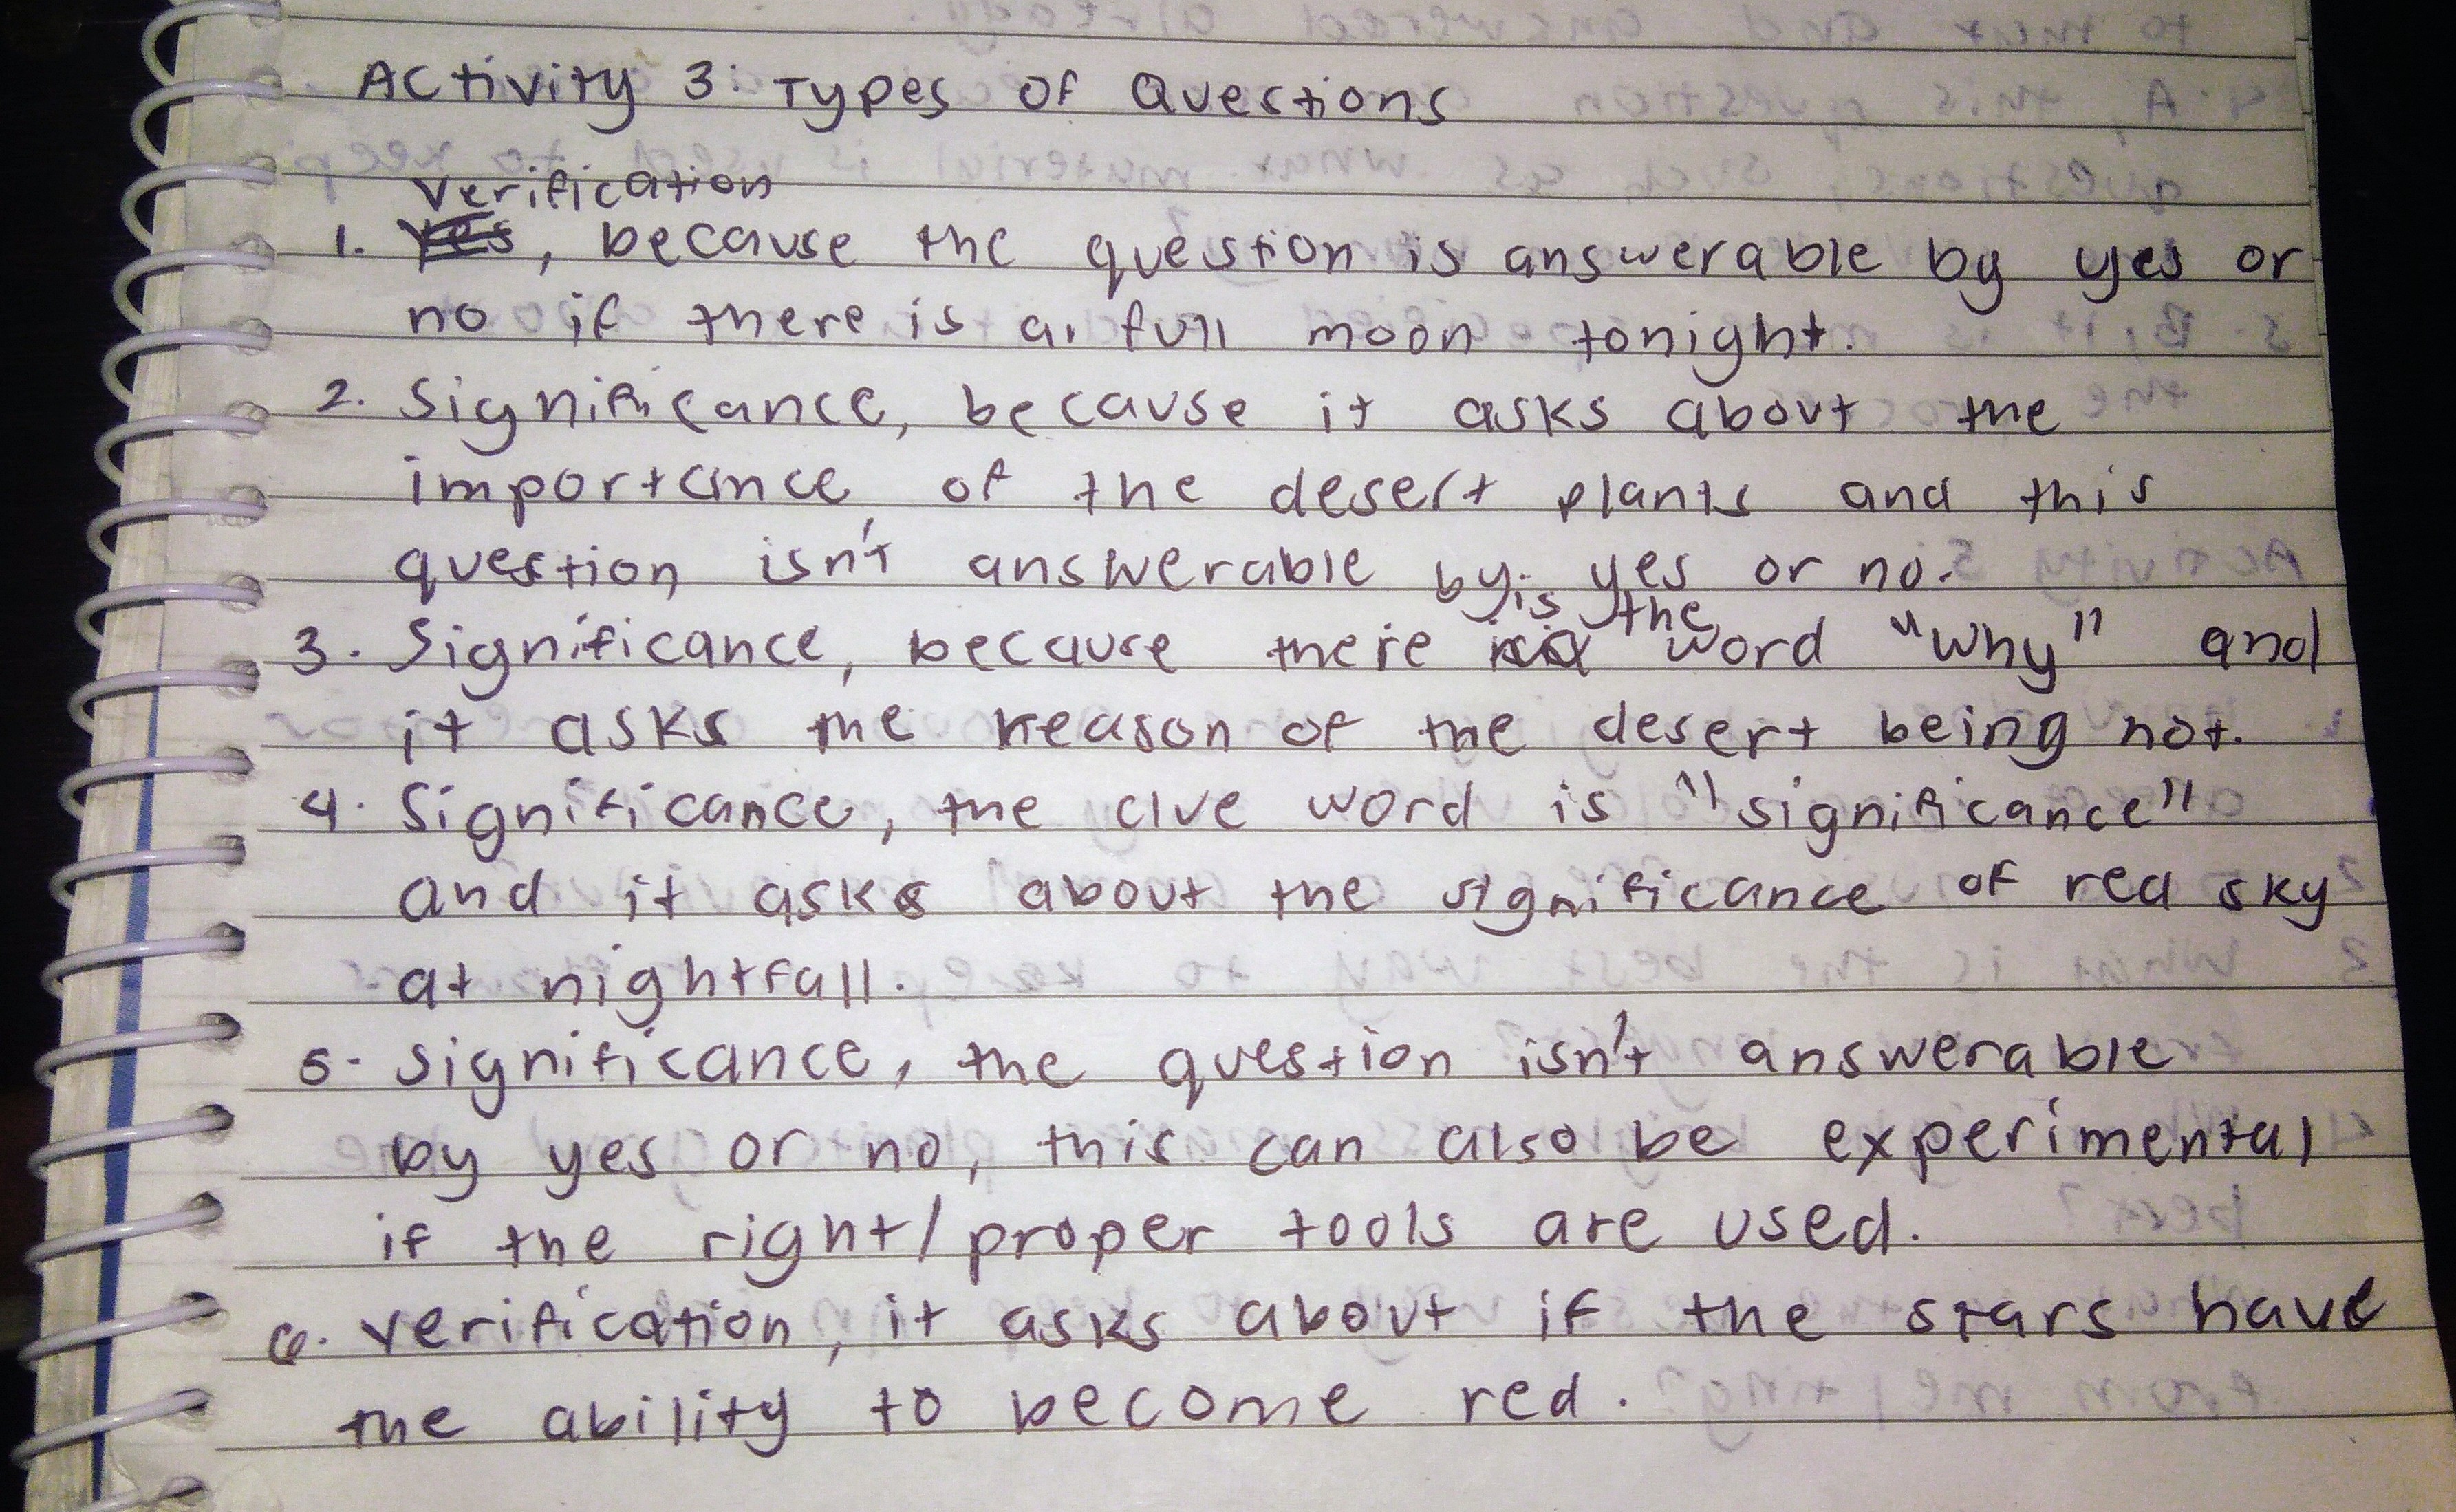 Activity 3: Types of Questions
verification
1. Yes, because the question is answerable by yes or
no if there is a full moon tonight.
2. Significance, because it asks about the
importance of the desert plants and this
question isn't answerable by yes or no.
is the
3. Significance, because there word "why" and
it asks the reason of the desert being hot.
4. Significance, the clue word is "significance"
and it asks about the significance of red sky
at nightfall.
5. Significance, the question isn't answerable
by yes or no, this can also be experimental
if the right/proper tools are used.
6. Verification, it asks about if the stars have
the ability to become red.